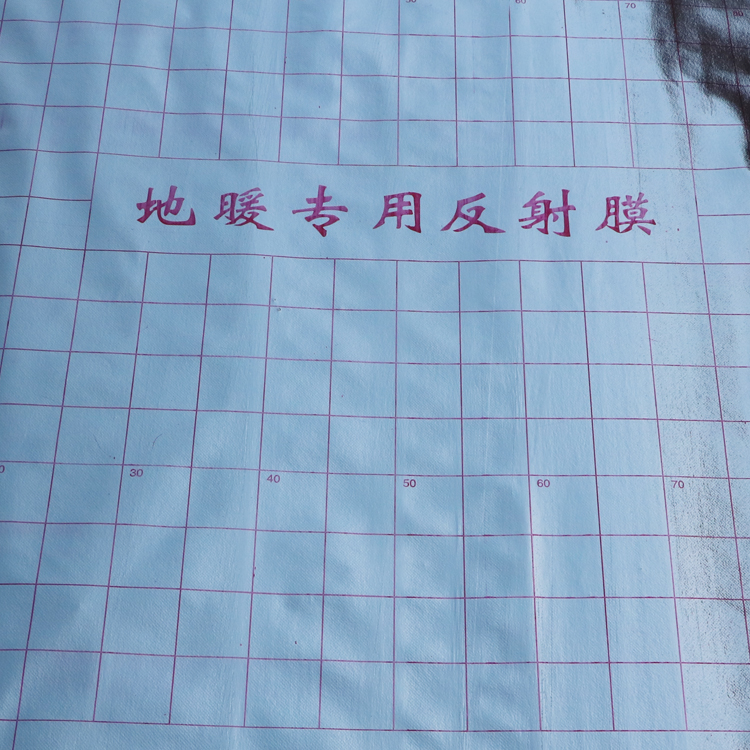 50 60 70 80
地暖专用反射膜
30 40 50 60 70